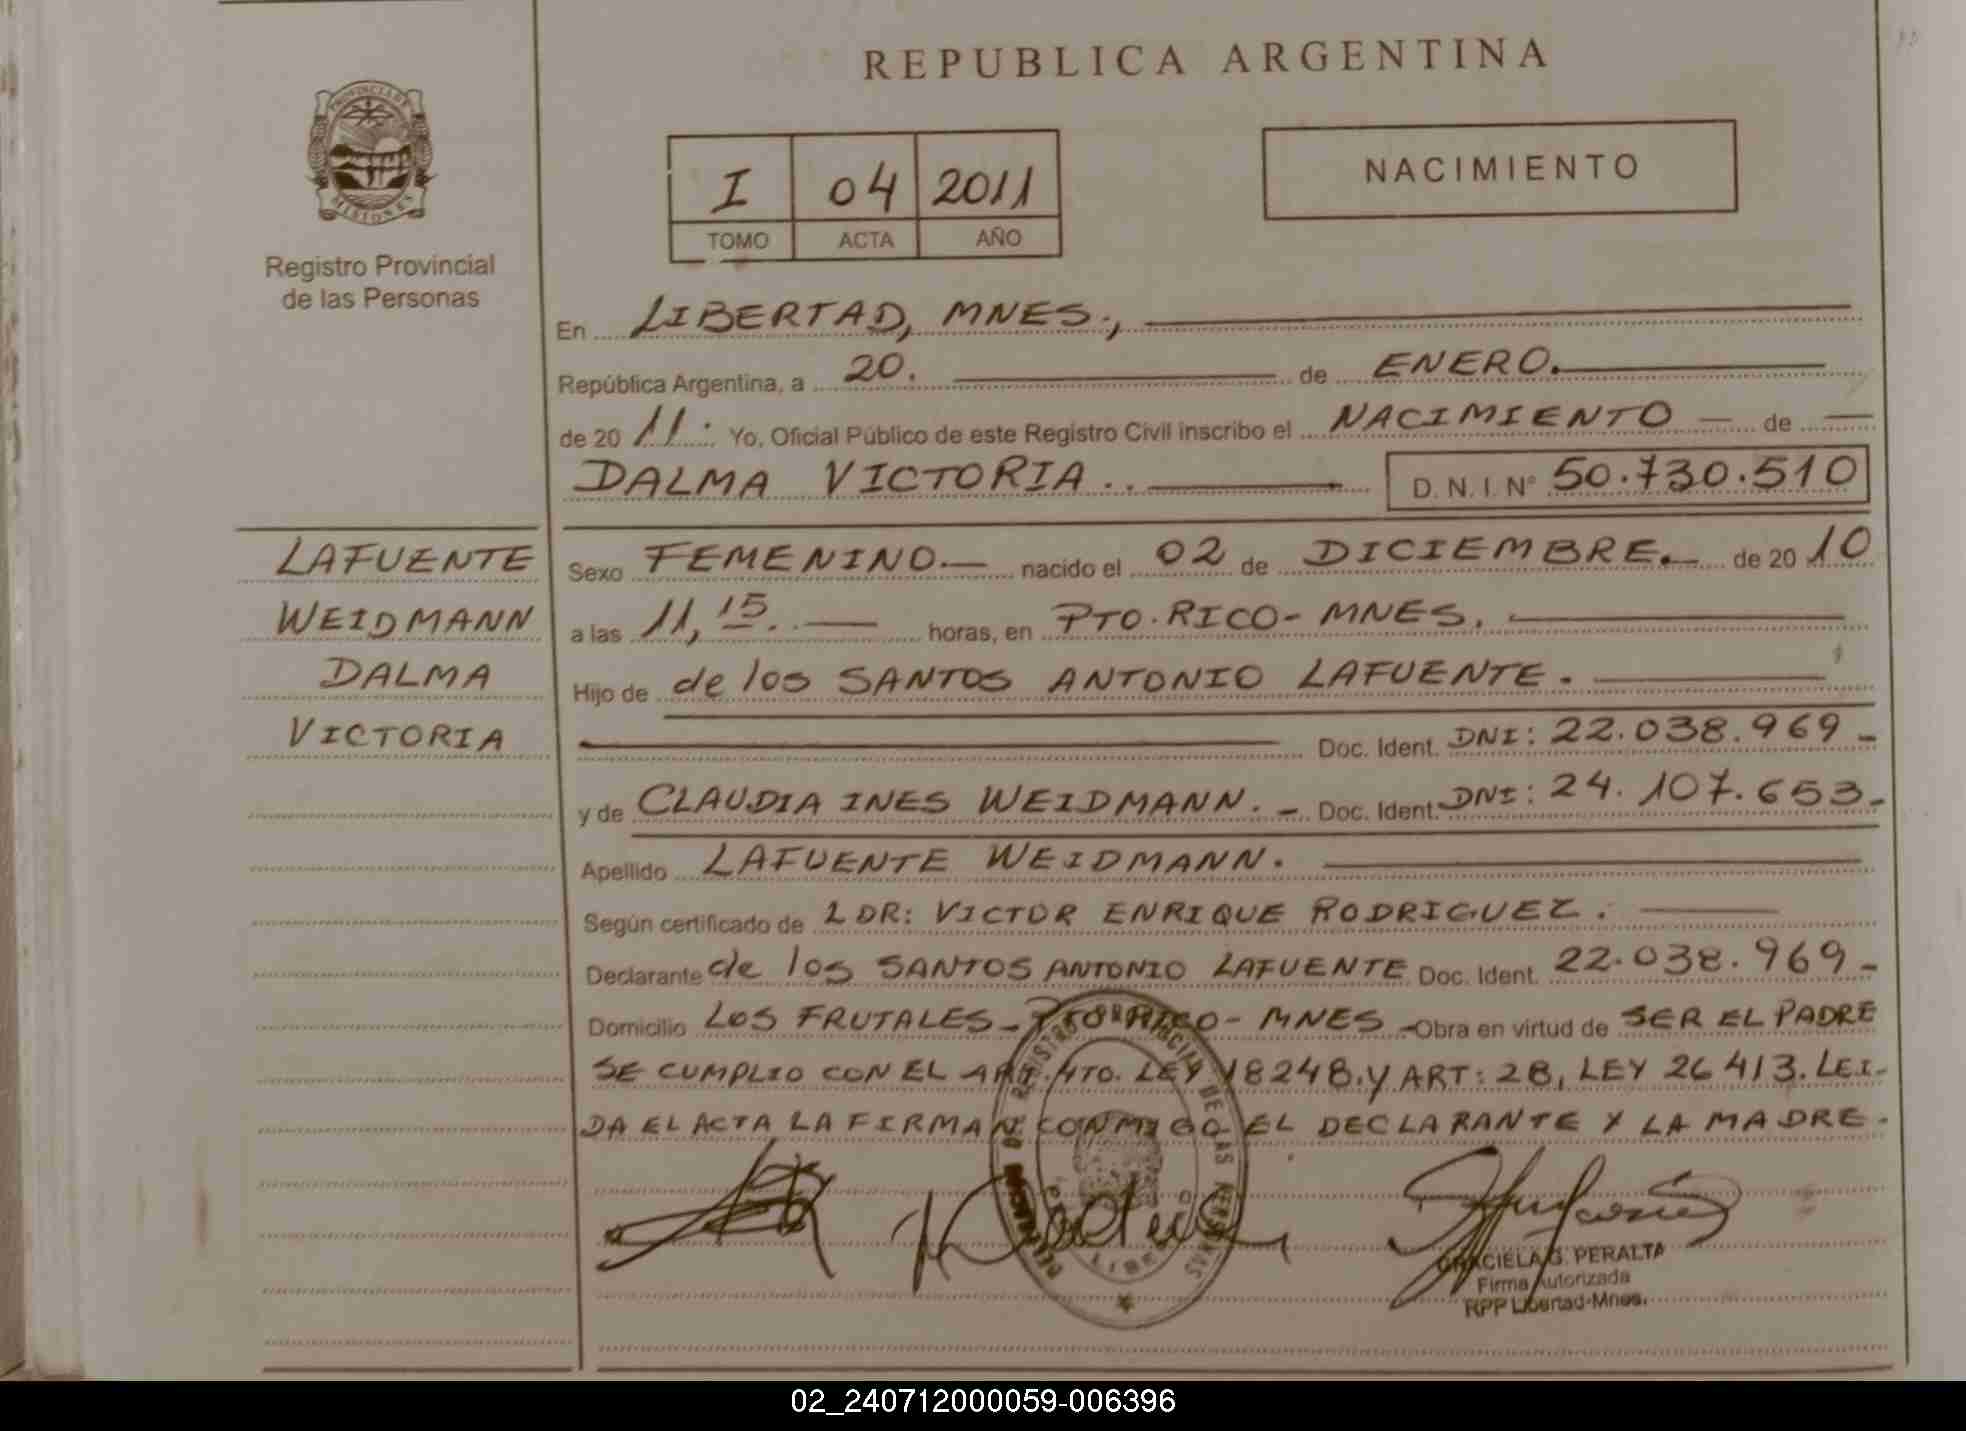 REPUBLICA ARGENTINA
PROVINCIA DE
MISIONES
Registro Provincial
de las Personas
I 04 2011
TOMO ACTA AÑO
NACIMIENTO
En LIBERTAD, MNES.,
República Argentina, a 20. de ENERO.
de 20 11. Yo, Oficial Público de este Registro Civil inscribo el NACIMIENTO de
DALMA VICTORIA.. D.N.I. N° 50.730.510
LAFUENTE
WEIDMANN
DALMA
VICTORIA
Sexo FEMENINO.— nacido el 02 de DICIEMBRE.— de 20 10
a las 11,15. — horas, en PTO. RICO- MNES.
Hijo de de los SANTOS ANTONIO LAFUENTE.
Doc. Ident. DNI: 22.038.969-
y de CLAUDIA INES WEIDMANN.- Doc. Ident. DNI: 24.107.653-
Apellido LAFUENTE WEIDMANN.
Según certificado de L DR: VICTOR ENRIQUE RODRIGUEZ.
Declarante de los SANTOS ANTONIO LAFUENTE Doc. Ident. 22.038.969-
Domicilio LOS FRUTALES- PTO RICO- MNES.- Obra en virtud de SER EL PADRE
SE CUMPLIO CON EL ART. 4TO. LEY 18248. Y ART: 28, LEY 26413. LEI-
DA EL ACTA LA FIRMAN CONMIGO EL DECLARANTE Y LA MADRE.
REGISTRO PROVINCIAL DE LAS PERSONAS
GRACIELA G. PERALTA
Firma Autorizada
RPP Libertad-Mnes.
02_240712000059-006396